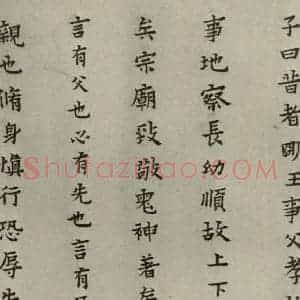 子曰昔者明王事父孝
事地察長幼順故上下
矣宗廟致敬鬼神著矣
言有父也必有先也言有
親也脩身慎行恐辱先